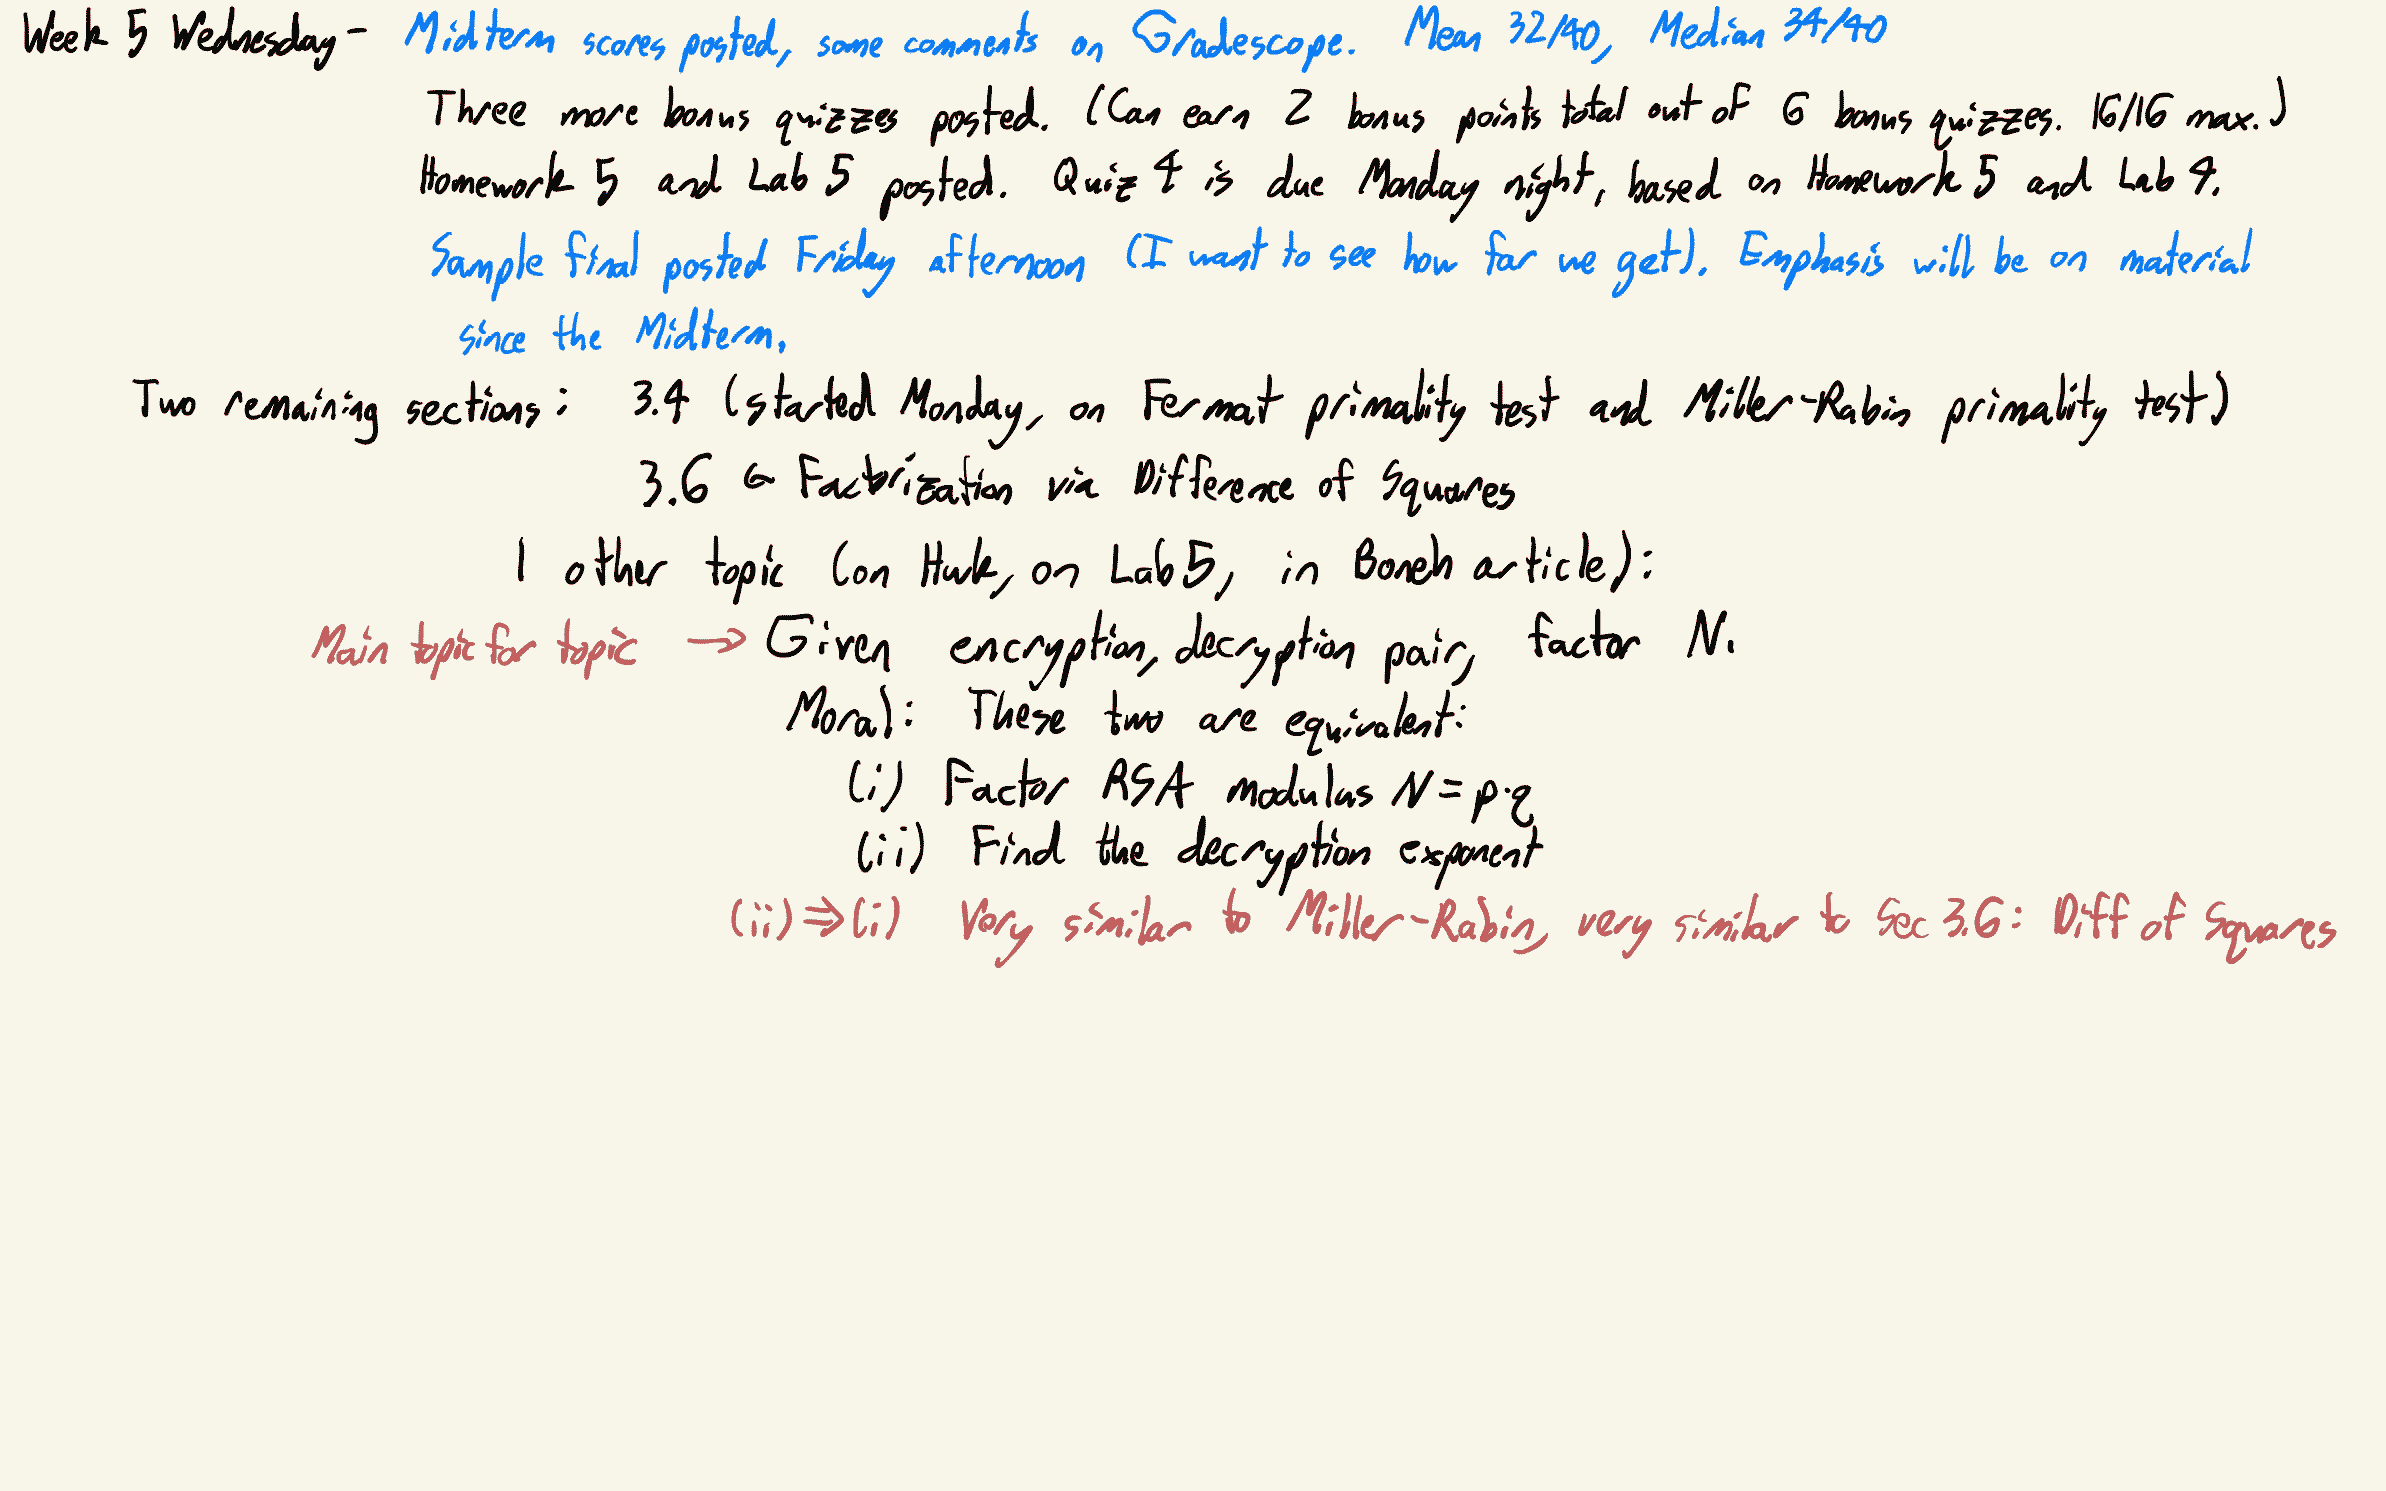 Week 5 Wednesday - Midterm scores posted, some comments on Gradescope. Mean 32/40, Median 34/40
Three more bonus quizzes posted. (Can earn 2 bonus points total out of 6 bonus quizzes. 16/16 max.)
Homework 5 and Lab 5 posted. Quiz 4 is due Monday night, based on Homework 5 and Lab 4.
Sample final posted Friday afternoon (I want to see how far we get). Emphasis will be on material
since the Midterm.
Two remaining sections: 3.4 (started Monday, on Fermat primality test and Miller-Rabin primality test)
3.6 ← Factorization via Difference of Squares
1 other topic (on Hwk, on Lab 5, in Boneh article):
Main topic for topic → Given encryption, decryption pair, factor N.
Moral: These two are equivalent:
(i) Factor RSA modulus N = p·q
(ii) Find the decryption exponent
(ii) ⇒ (i) Very similar to Miller-Rabin, very similar to Sec 3.6: Diff of Squares